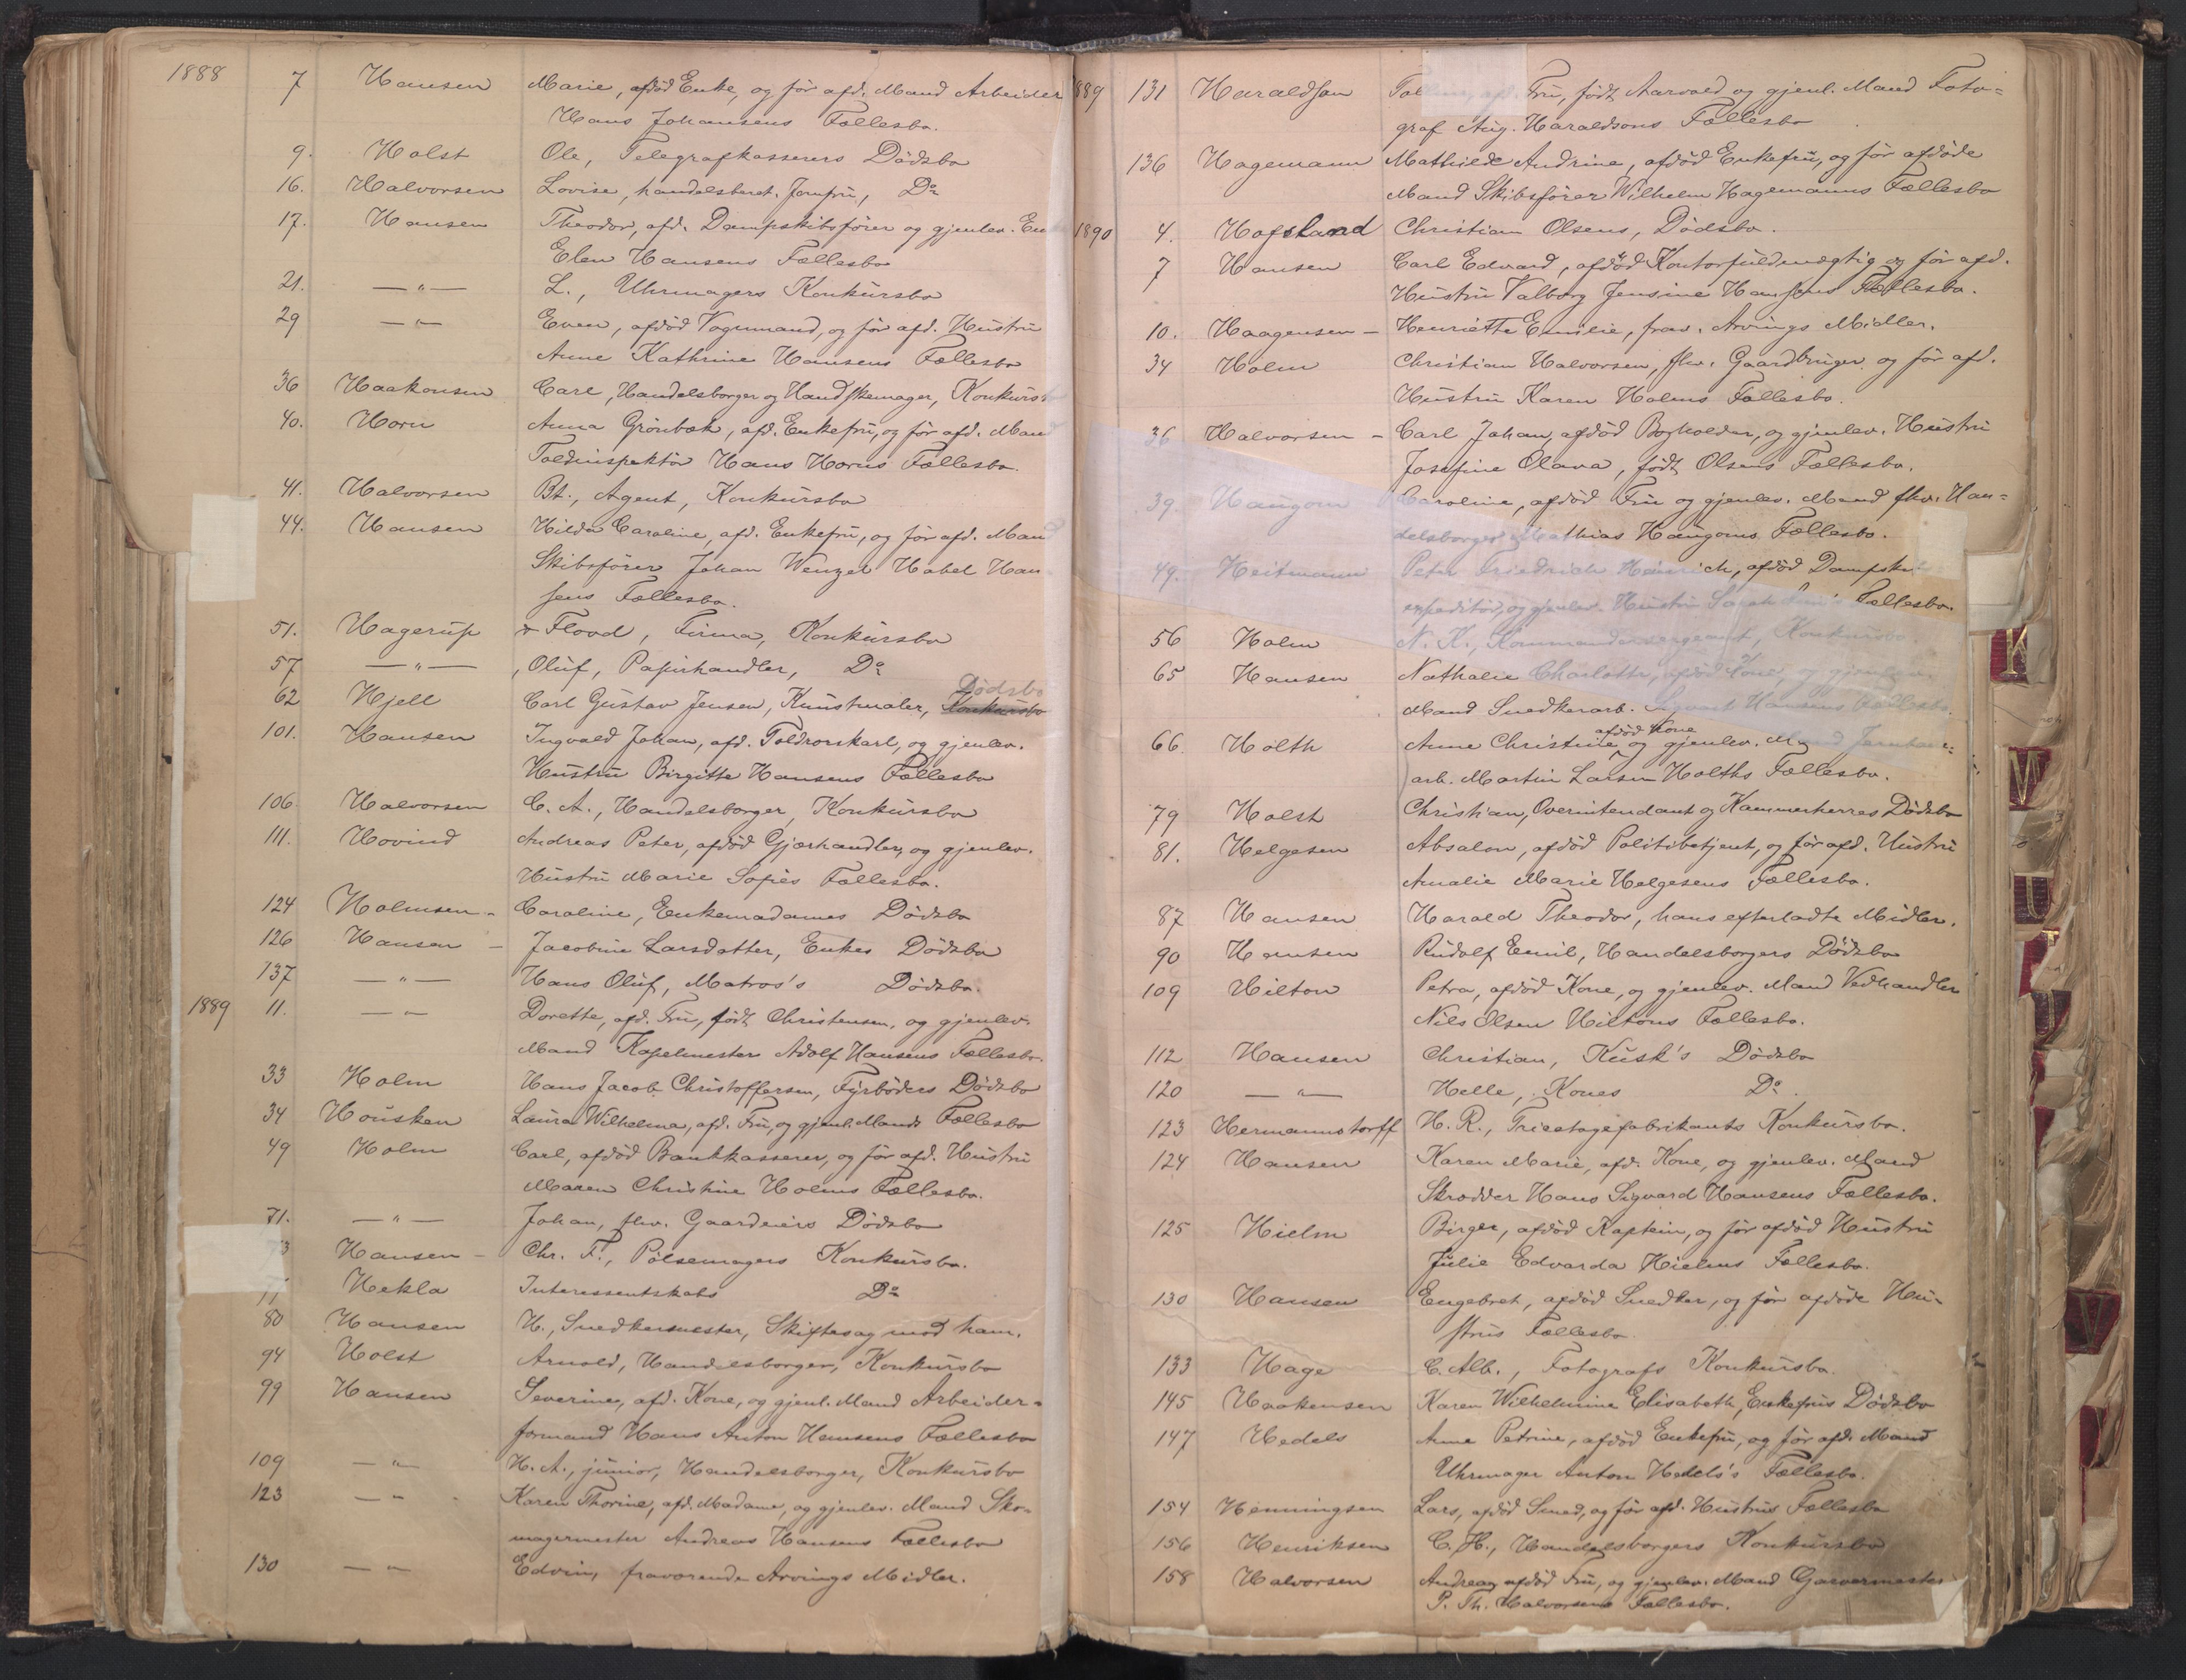 1888 7 Hansen Marie, afdöd Enke, og för afd. Mand Arbeider
Hans Johansens Fællesbo.
9. Holst Ole, Telegrafkasserers Dödsbo
16. Halvorsen Lovise, handelsberet. Jomfru, Do
17. Hansen Theodor, afd. Dampskibsförer og gjenlev. Enke
Elen Hansens Fællesbo
21. —"— L., Uhrmagers Konkursbo
29 —"— Even, afdöd Vognmand, og för afd. Hustru
Anne Kathrine Hansens Fællesbo
36 Haakonsen Carl, Handelsborger og Handskemager, Konkursbo
40. Horn Anna Grönbæk, afd. Enkefru, og för afd. Mand
Toldinspektör Hans Horns Fællesbo.
41. Halvorsen Bt., Agent, Konkursbo
44. Hansen Hilda Caroline, afd. Enkefru, og för afd. Mand
Skibsförer Johan Wenzel Habel Han
sens Fællesbo.
51. Hagerup & Flood, Firma, Konkursbo
57 —"— , Oluf, Papirhandler, Do
62 Hjell Carl Gustav Jensen, Kunstmaler, Konkursbo Dödsbo
101. Hansen Ingvald Johan, afd. Toldrorskarl, og gjenlev.
Hustru Birgitte Hansens Fællesbo
106 Halvorsen C. A., Handelsborger, Konkursbo
111. Hovind Andreas Peter, afdöd Gjærhandler, og gjenlev.
Hustru Marie Sofies Fællesbo.
124 Holmsen - Caroline, Enkemadames Dödsbo
126 Hansen - Jacobine Larsdatter, Enkes Dödsbo
137 —"— Hans Oluf, Matros's Dödsbo
1889 11. —"— Dorette, afd. Fru, födt Christensen, og gjenlev.
Mand Kapelmester Adolf Hansens Fællesbo.
33 Holm Hans Jacob Christoffersen, Fyrböders Dödsbo
34 Housken Laura Wilhelma, afd. Fru, og gjenl. Mands Fællesbo
49 Holm Carl, afdöd Bankkasserer, og för afd. Hustru
Maren Christine Holms Fællesbo.
71. —"— Johan, fhv. Gaardeiers Dödsbo
3 Hansen - Chr. F., Pölsemagers Konkursbo.
Hekla Interessentskabs Do
80 Hansen H., Snedkermester, Skiftesag mod ham.
94 Holst Arnold, Handelsborger, Konkursbo
99 Hansen Severine, afd. Kone, og gjenl. Mand Arbeider-
formand Hans Anton Hansens Fællesbo
109 —"— H. A., junior, Handelsborger, Konkursbo
123 —"— Karen Thorine, afd. Madame, og gjenlev. Mand Sko-
magermester Andreas Hansens Fællesbo
130 —"— Edvin, fraværende Arvings Midler.
1889 131 Haraldson afd. Fru, födt Aarvold og gjenl. Mand Foto=
graf Aug. Haraldsons Fællesbo
136 Hagemann Mathilde Andrine, afdöd Enkefru, og för afdöde
Mand Skibsförer Wilhelm Hagemanns Fællesbo
1890 4. Hofsland Christian Olsens, Dödsbo.
7 Hansen Carl Edvard, afdöd Kontorfuldmægtig og för afd.
Hustru Valborg Jensine Hansens Fællesbo.
10. Haagensen - Henriette Emilie, frav. Arvings Midler.
34 Holm Christian Halvorsen, fhv. Gaardbruger og för afd.
Hustru Karen Holms Fællesbo.
36 Halvorsen - Carl Johan, afdöd Bogholder, og gjenlev. Hustru
Josefine Olava, födt Olsens Fællesbo.
39. Haugom Caroline, afdöd Fru og gjenlev. Mand fhv. Han=
delsborger Mathias Haugoms Fællesbo.
49. Heitmann Peter Friedrich Heinrich, afdöd Dampsk
expeditör, og gjenlev. Hustru Sarah Fællesbo.
56 Holm N. K., Kommandersergeant, Konkursbo.
65 Hansen Nathalie Charlotte, afdöd Kone, og gjenlev.
Mand Snedkerarb. Sigvart Hansens Fællesbo.
66. Holth Anne Christine, afdöd Kone og gjenlev. Mand Jernbane=
arb. Martin Larsen Holths Fællesbo.
79 Holst Christian, Overintendant og Kammerherres Dödsbo
81. Helgesen Absalon, afdöd Politibetjent, og för afd. Hustru
Amalie Marie Helgesens Fællesbo.
87 Hansen Harald Theodor, hans efterladte Midler.
90 Hansen Rudolf Emil, Handelsborgers Dödsbo
109 Hilton Petra, afdöd Kone, og gjenlev. Mand Vedhandler
Nils Olsen Hiltons Fællesbo.
112 Hansen Christian, Kusk's Dödsbo
120 —"— Helle, Kones Do.
123 Hermannstorff H. R., Tricotagefabrikants Konkursbo.
124 Hansen Karen Marie, afd. Kone, og gjenlev. Mand
Skrædder Hans Sigvard Hansens Fællesbo.
125 Hielm Birger, afdöd Kaptein, og för afdöd Hustru
Julie Edvarda Hielms Fællesbo.
130 Hansen Engebret, afdöd Snedker, og för afdöde Hu-
strus Fællesbo.
133 Hage C. Alb., Fotografs Konkursbo.
145 Haakensen Karen Wilhelmine Elisabeth, Enkefrus Dödsbo
147 Hedels Anne Petrine, afdöd Enkefru, og för afd. Mand
Uhrmager Anton Hedels's Fællesbo.
154 Henningsen Lars, afdöd Smed, og för afd. Hustrus Fællesbo
156 Henriksen C. H., Handelsborgers Konkursbo
158 Halvorsen Andrea, afdöd Fru, og gjenlev. Mand Garvermester
P. Th. Halvorsens Fællesbo.
K
W
U
V